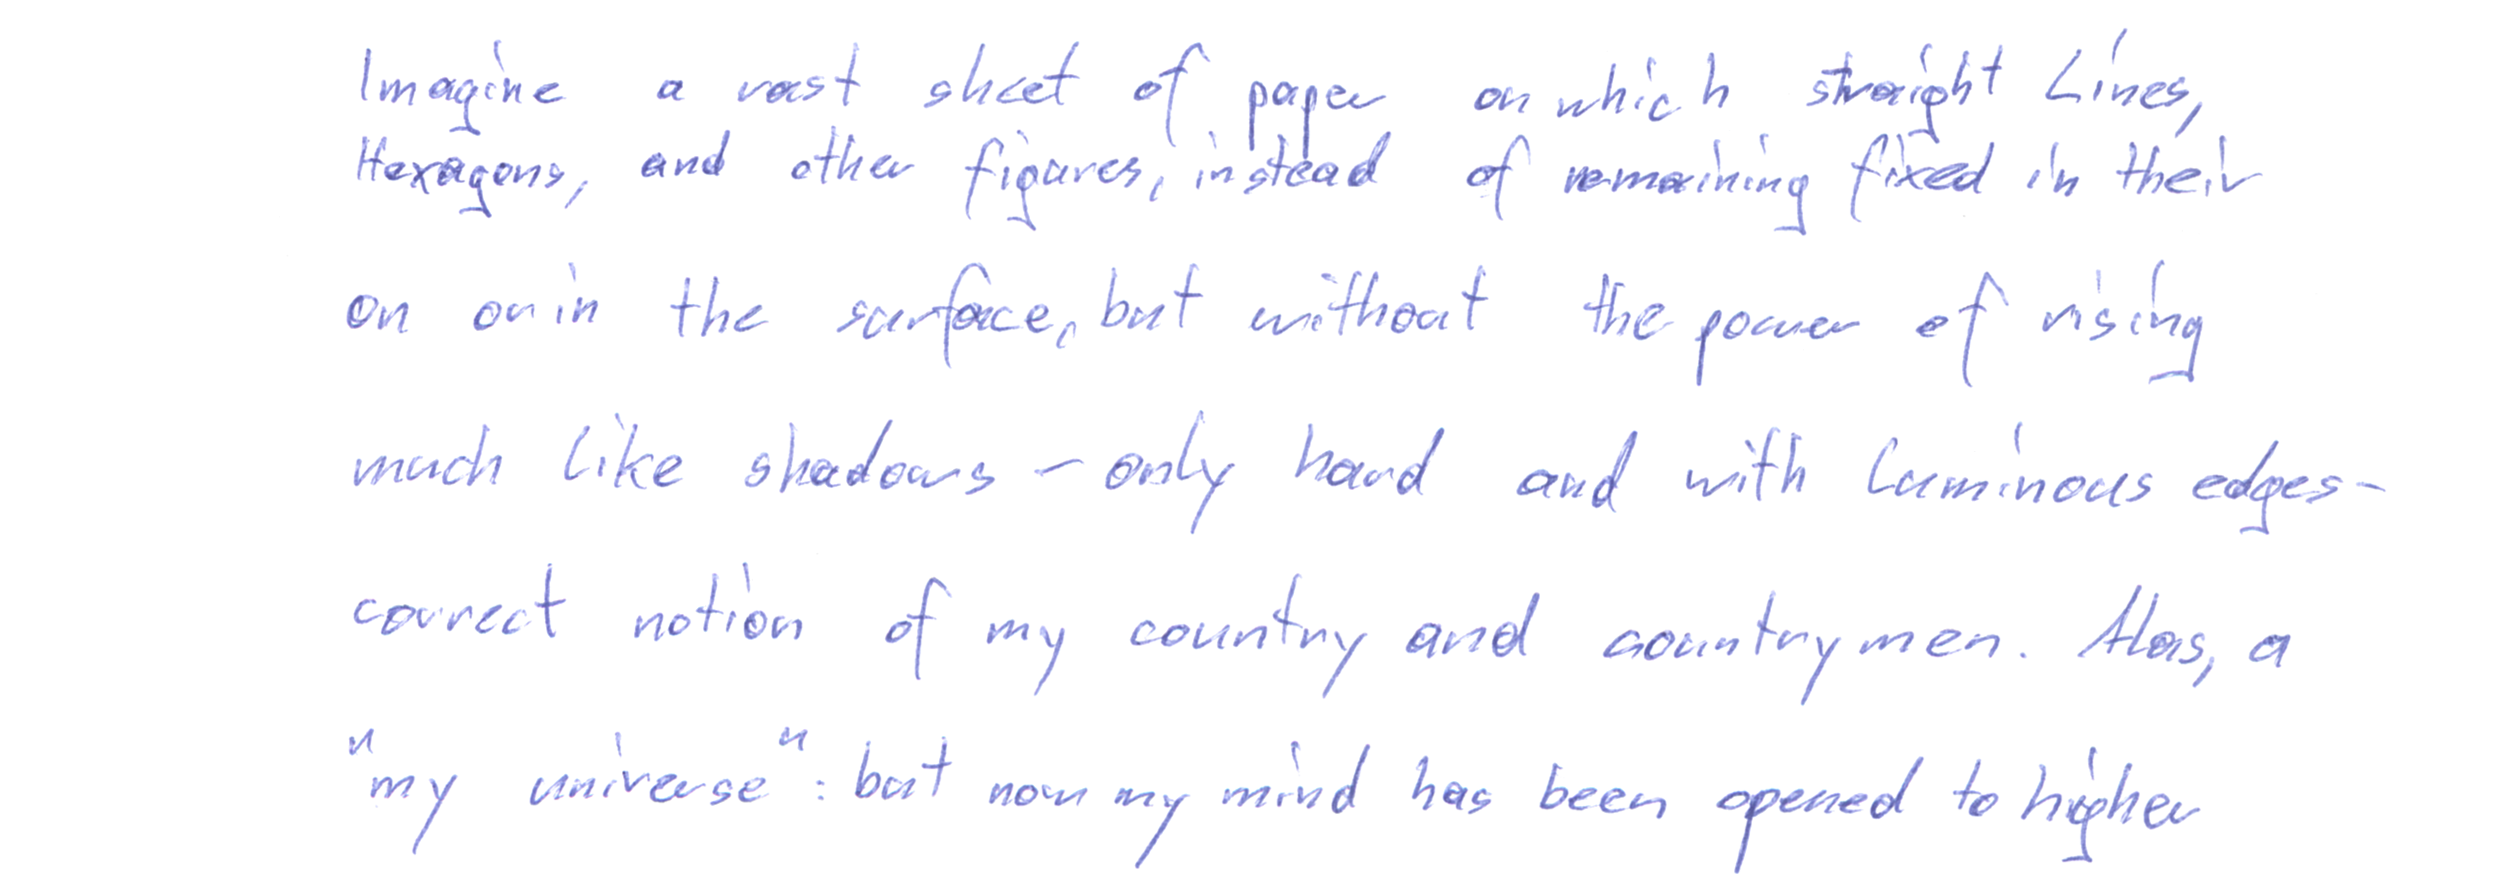 Imagine a vast sheet of paper on which straight Lines,
Hexagons, and other figures, instead of remaining fixed in their
on or in the surface, but without the power of rising
much like shadows - only hard and with luminous edges -
correct notion of my country and countrymen. Alas, a
"my universe": but now my mind has been opened to higher